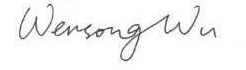 Wensong Wu